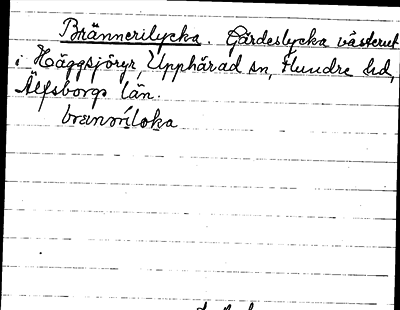 Brännerilycka. Gärdeslycka västerut
i Häggsjöryr, Upphärad sn, Flundre hd,
Älfsborgs län.
brannríloka